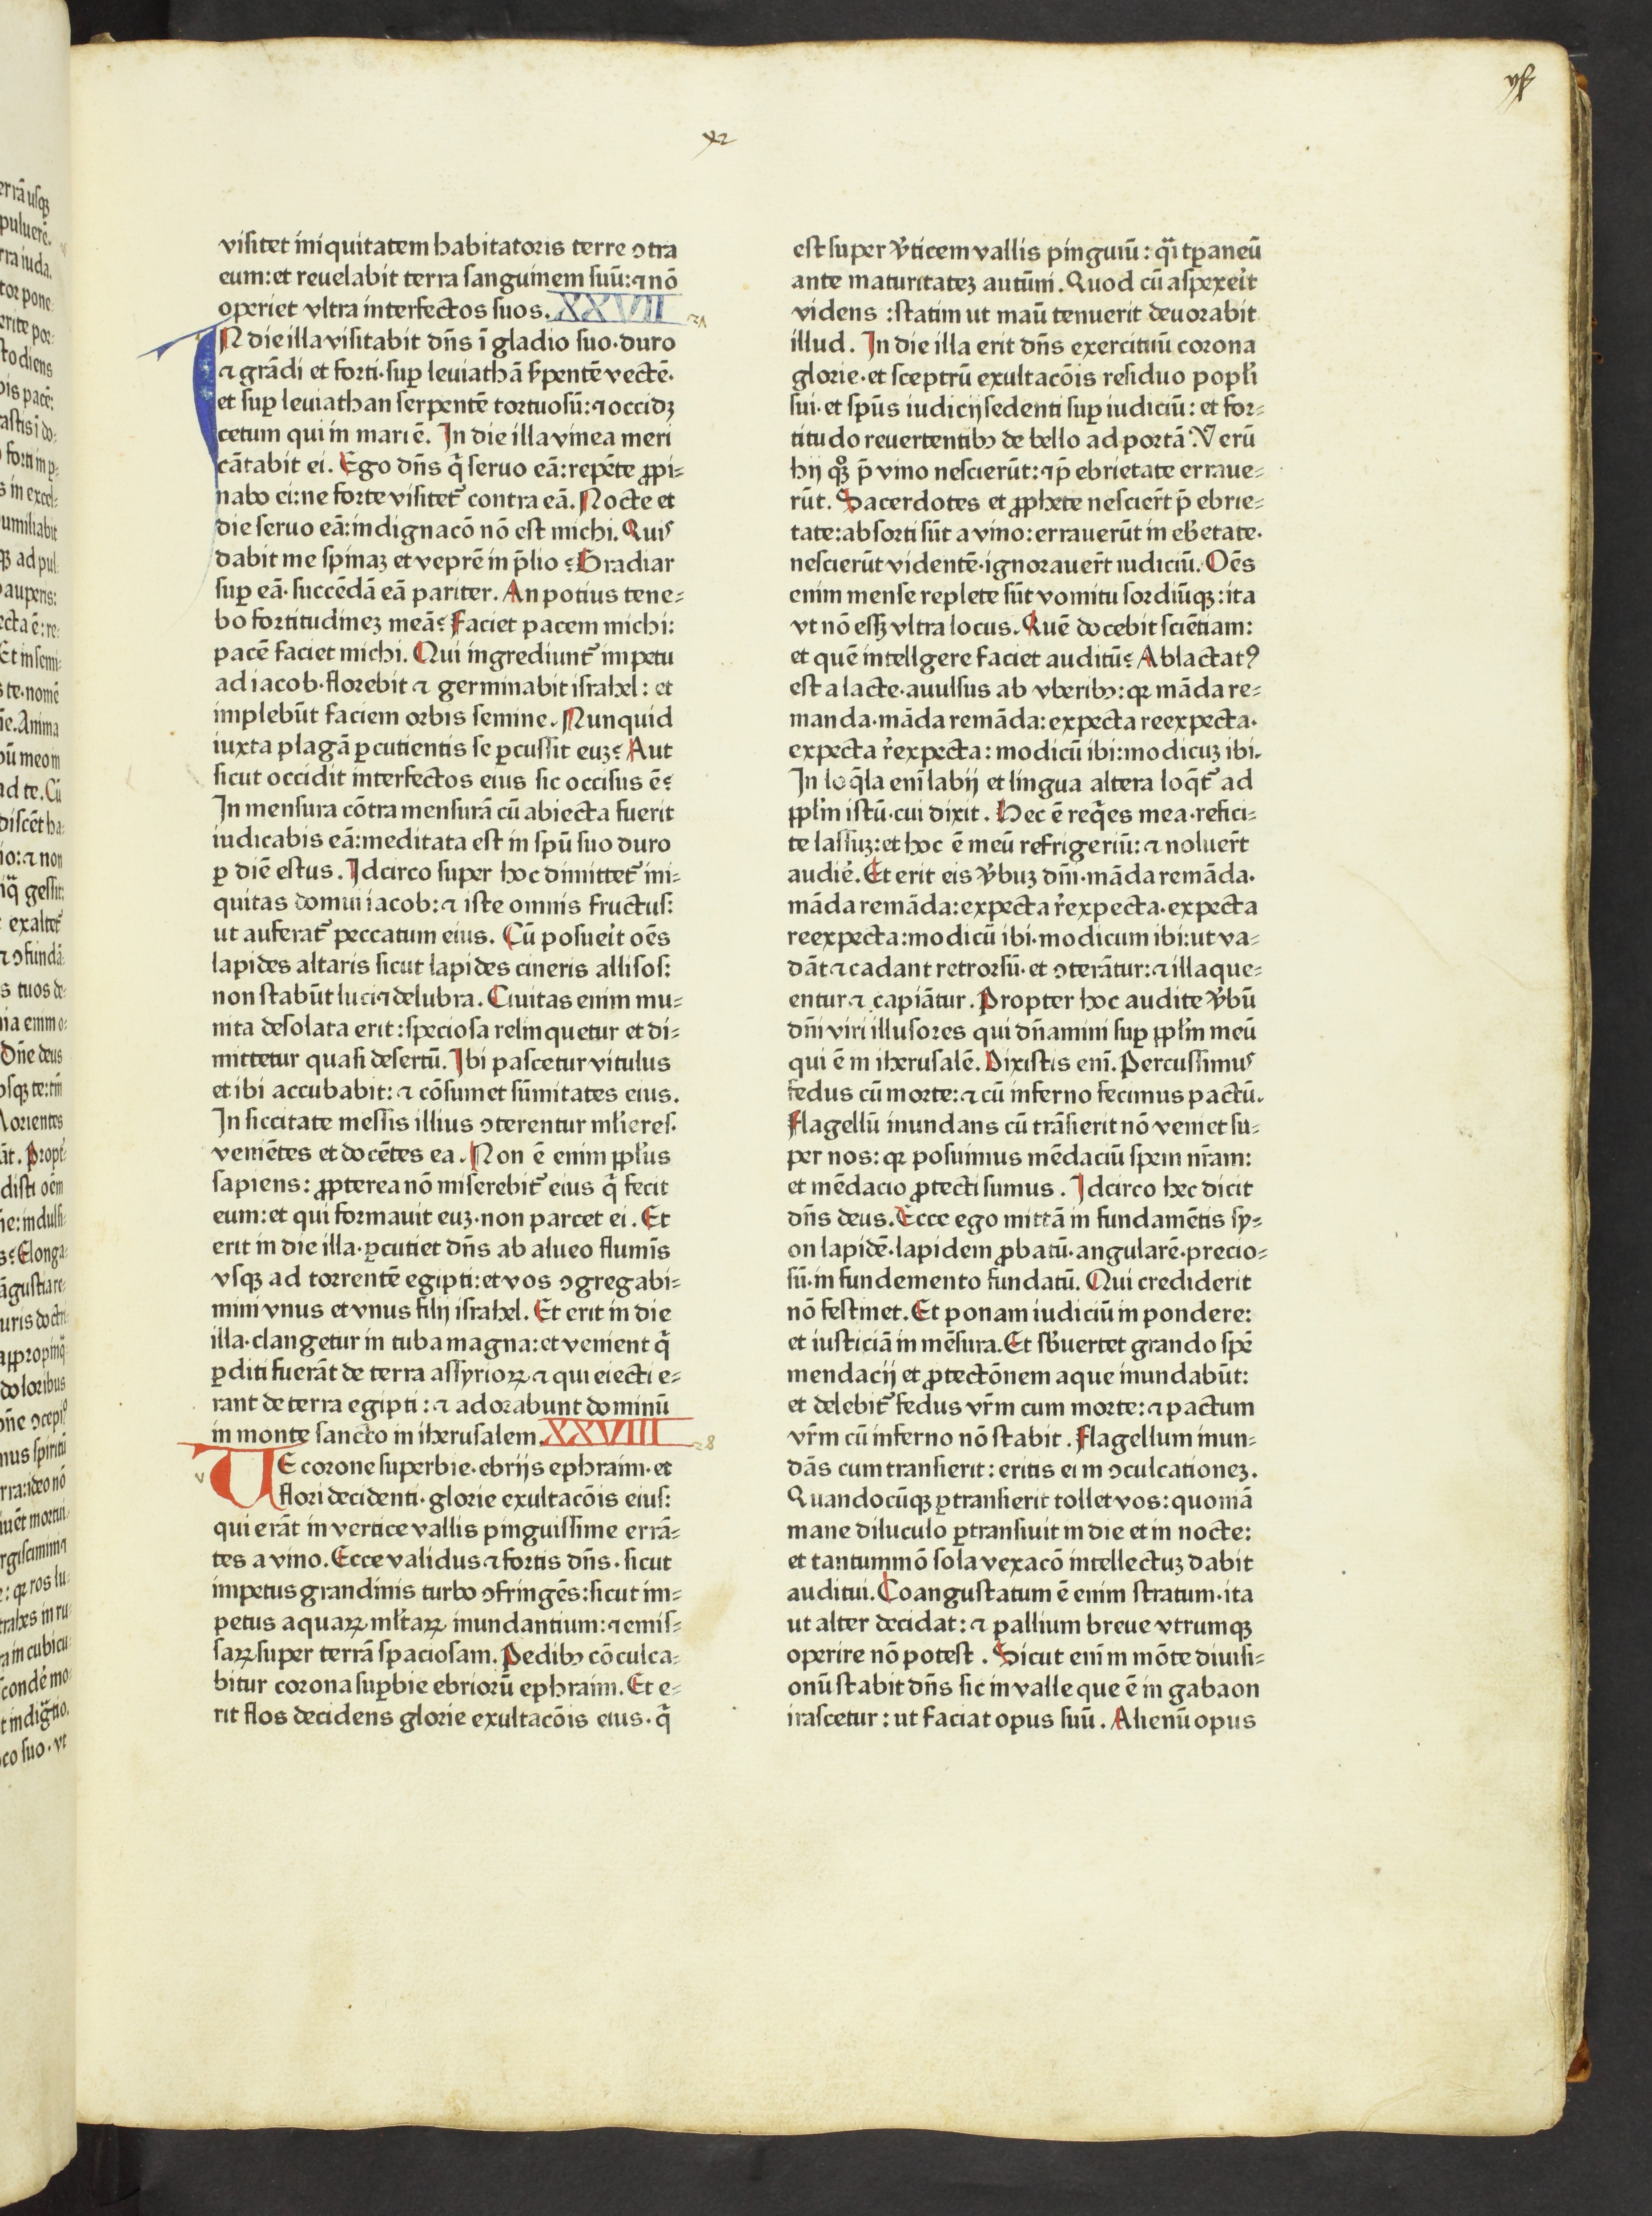 visitet iniquitatem habitatoris terre ↄtra
eum: et reuelabit terra sanguinem suū: ⁊ nō
operiet vltra interfectos suos. XXVII
IN die illa visitabit dn̄s ī gladio suo· duro
⁊ grādi et forti· suꝑ leuiathā s̄pentē vectē·
et suꝑ leuiathan serpentē tortuosū: ⁊ occidꝫ
cetum qui in mari ē. In die illa vinea meri
cātabit ei. Ego dn̄s q̄ seruo eā: repēte ꝓpi⸗
nabo ei: ne forte visitet᷑ contra eā. Nocte et
die seruo eā: indignacō nō est michi. Quis
dabit me spinaꝫ et veprē in p̄lio? Gradiar
suꝑ eā· succēdā eā pariter. An potius tene⸗
bo fortitudineꝫ meā? Faciet pacem michi:
pacē faciet michi. Qui ingrediunt᷑ impetu
ad iacob· florebit ⁊ germinabit israhel: et
implebūt faciem orbis semine. Nunquid
iuxta plagā ꝑcutientis se ꝑcussit euꝫ? Aut
sicut occidit interfectos eius sic occisus ē?
In mensura cōtra mensurā cū abiecta fuerit
iudicabis eā: meditata est in spū suo duro
ꝑ diē estus. Idcirco super hoc dimittet᷑ ini⸗
quitas domui iacob: ⁊ iste omnis fructus:
ut auferat᷑ peccatum eius. Cū posueit᷑ oēs
lapides altaris sicut lapides cineris allisos:
non stabūt luci ⁊ delubra. Ciuitas enim mu⸗
nita desolata erit: speciosa relinquetur et di⸗
mittetur quasi desertū. Ibi pascetur vitulus
et ibi accubabit: ⁊ cōsumet sūmitates eius.
In siccitate messis illius ↄterentur ml̄ieres·
veniētes et docētes ea. Non ē enim ppl̄us
sapiens: ꝓpterea nō miserebit᷑ eius q̄ fecit
eum: et qui formauit euꝫ· non parcet ei. Et
erit in die illa· ꝑcutiet dn̄s ab alueo flumīs
vsqꝫ ad torrentē egipti: et vos ↄgregabi⸗
mini vnus et vnus filij israhel. Et erit in die
illa· clangetur in tuba magna: et venient q̄
ꝑditi fuerāt de terra assyrioꝝ ⁊ qui eiecti e⸗
rant de terra egipti: ⁊ adorabunt dominū
in monte sancto in iherusalem. XXVIII
UE corone superbie· ebrijs ephraim· et
flori decidenti· glorie exultacōis eius:
qui erāt in vertice vallis pinguissime errā⸗
tes a vino. Ecce validus ⁊ fortis dn̄s· sicut
impetus grandinis turbo ↄfringēs: sicut im⸗
petus aquaꝝ ml̄taꝝ inundantium: ⁊ emis⸗
saꝝ super terrā spaciosam. Pedibꝫ cōculca⸗
bitur corona suꝑbie ebriorū ephraim. Et e⸗
rit flos decidens glorie exultacōis eius· q̄
est super v̄ticem vallis pinguiū: q̄i tꝑaneū
ante maturitateꝫ autūni. Quod cū aspexeit᷑
videns: statim ut maū tenuerit deuorabit
illud. In die illa erit dn̄s exercituū corona
glorie· et sceptrū exultacōis residuo popl̄i
sui· et spūs iudicij sedenti suꝑ iudiciū: et for⸗
titudo reuertentibꝫ de bello ad portā. Verū
hij qͦꝫ p̄ vino nescierūt: ⁊ p̄ ebrietate erraue⸗
rūt. Sacerdotes et ꝓphete nescier̄t p̄ ebrie⸗
tate: absorti sūt a vino: errauerūt in eb̄etate·
nescierūt videntē· ignorauer̄t iudiciū. Oēs
enim mense replete sūt vomitu sordiūqꝫ: ita
vt nō essꝫ vltra locus. Quē docebit sciētiam:
et quē intellgere faciet auditū? Ablactatꝰ
est a lacte· auulsus ab vberibꝫ: qꝛ māda re⸗
manda· māda remāda: expecta reexpecta·
expecta r̄expecta: modicū ibi: modicuꝫ ibi.
In loq̄la enī labij et lingua altera loq̄t᷑ ad
ppl̄m istū· cui dixit. Hec ē req̄es mea· refici⸗
te lassuꝫ: et hoc ē meū refrigeriū: ⁊ noluer̄t
audiē. Et erit eis v̄buꝫ dn̄i· māda remāda·
māda remāda: expecta r̄expecta· expecta
reexpecta: modicū ibi· modicum ibi: ut va⸗
dāt ⁊ cadant retrorsū· et ↄterātur: ⁊ illaque⸗
entur ⁊ capiātur. Propter hoc audite v̄bū
dn̄i viri illusores qui dn̄amini suꝑ ppl̄m meū
qui ē in iherusalē. Dixistis enī. Percussimus
fedus cū morte: ⁊ cū inferno fecimus pactū.
Flagellū inundans cū trāsierit nō veniet su⸗
per nos: qꝛ posuimus mēdaciū spem nr̄am:
et mēdacio ꝓtecti sumus. Idcirco hec dicit
dn̄s deus. Ecce ego mittā in fundamētis sy⸗
on lapidē· lapidem ꝓbatū· angularē· precio⸗
sū· in fundemento fundatū. Qui crediderit
nō festinet. Et ponam iudiciū in pondere:
et iusticiā in mēsura. Et sb̄uertet grando spē
mendacij et ꝓtectōnem aque inundabūt:
et delebit᷑ fedus vr̄m cum morte: ⁊ pactum
vr̄m cū inferno nō stabit. Flagellum inun⸗
dās cum transierit: eritis ei in ↄculcationeꝫ.
Quandocūqꝫ ꝑtransierit tollet vos: quoniā
mane diluculo ꝑtransiuit in die et in nocte:
et tantummō sola vexacō intellectuꝫ dabit
auditui. Coangustatum ē enim stratum· ita
ut alter decidat: ⁊ pallium breue vtrumqꝫ
operire nō potest. Sicut enī in mōte diuisi⸗
onū stabit dn̄s sic in valle que ē in gabaon
irascetur: ut faciat opus suū. Alienū opus